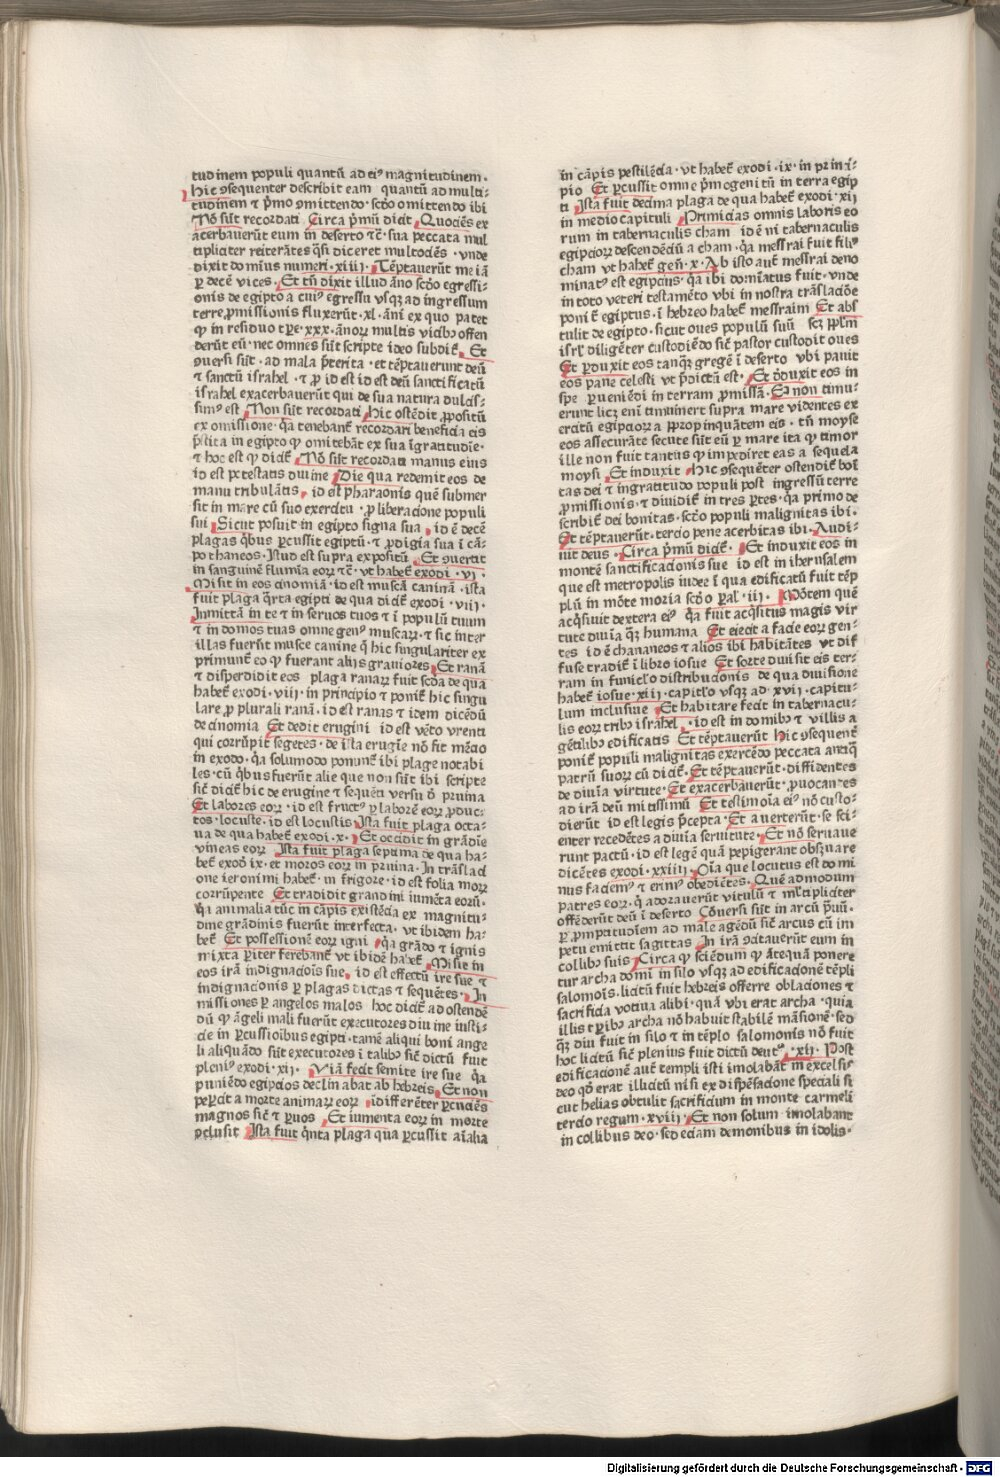 tudinem populi quantū ad eiꝰ magnitudinem.
Hic ꝯsequenter describit eam quantū ad multi-
tudinem ⁊ pͥmo ꝯmittendo. scd̄o omittendo ibi
Nō sūt recordati Circa pͥmū dicit. Quociēs ex
acerbauerūt eum in deserto ⁊c̄. sua peccata mul
tipliciter reiterātes q̄si diceret multociēs. vnde
dixit dominus numeri. xiiii. Tēptauerūt me iā
ꝑ decē vices. Et tn̄ dixit illud āno scd̄o egressi-
onis de egipto a cuiꝰ egressu vsqꝫ ad ingressum
terre ꝓmissionis fluxerūt. xl. āni ex quo patet
ꝙ in residuo tꝑe. xxx. ānoꝝ multis vicibꝰ offen
derūt eū. nec omnes sūt scripte ideo subdit. Et
ꝯuersi sūt. ad mala pͥterita. et tēptauerunt deū
⁊ sanctū israhel. ⁊ ꝓ id est id est deū sanctificatū
israhel exacerbauerūt qui de sua natura dulcis-
simꝰ est. Non sūt recordati. hic ostēdit ꝓpositū
ex omissione. q̄a tenebant᷑ recordari beneficia eis
pͥstita in egipto ꝙ omitebāt ex sua īgratitudīe.
⁊ hoc est ꝙ dicit᷑. Nō sūt recordati manus eius
id est potestatis diuine. Die qua redemit eos de
manu tribulātis. id est pharaonis quē submer
sit in mare cū suo exercitu. ꝓ liberacione populi
sui. Sicut posuit in egipto signa sua. id ē decē
plagas q̄bus ꝑcussit egiptū. ⁊ ꝓdigia sua ī cā-
po thaneos. Istud est supra expositū. Et ꝯuertit
in sanguinē flumīa eoꝝ ⁊c̄. vt habet᷑ exodi. vi.
Misit in eos cinomiā. id est muscā caninā. ista
fuit plaga q̄rta egipti de qua dicit᷑ exodi. viii.
Inmittā in te ⁊ in seruos tuos ⁊ ī populū tuum
⁊ in domos tuas omne genꝰ muscaꝝ. ⁊ sic inter
illas fuersit musce canine q̄ hic singulariter ex
primunt᷑ eo ꝙ fuerant aliis grauiores. Et ranā
⁊ disperdidit eos plaga ranaꝝ fuit scd̄a de qua
habet᷑ exodi. viii. in principio ⁊ ponit᷑ hic singu
lare ꝓ plurali ranā. id est ranas ⁊ idem dicēdū
de cinomia Et dedit erugini id est vēto vrenti
qui corrūpit segetes. de ista erugīe nō fit mētio
in exodo. q̄a solumodo ponunt᷑ ibi plage notabi
les. cū q̄bus fuerūt alie que non sūt ibi scripte
sic̄ dicit᷑ hic de erugine ⁊ sequēti versu ō pruina
Et labores eoꝝ. id est fructꝰ ꝑ laborē eoꝝ ꝓduc-
tos. locuste. id est locustis. Ista fuit plaga octa-
ua de qua habet᷑ exodi. x. Et occidit in grādīe
vineas eoꝝ Ista fuit plaga septima de qua ha-
bet᷑ exod̄ ix. et moros eoꝝ in pruina. In trāslaci
one ieronimi habet᷑. in frigore. id est folia moꝝ
corrūpente Et tradidit grandini iumēta eorū.
q̄a animalia tūc in cāpis existēcia ex magnitu-
dine grādinis fuerūt interfecta. vt ibidem ha-
bet᷑ Et possessionē eoꝝ igni. q̄a grādo ⁊ ignis
mixta ꝑiter ferebant᷑ vt ibidē habet᷑. Misit in
eos irā indignacōis sue. id est effectū ire sue ⁊
indignacionis ꝑ plagas dictas ⁊ sequētes. In
missiones ꝑ angelos malos hoc dicit᷑ ad ostendē
dū ꝙ āgeli mali fuerūt executores diuine iusti-
cie in ꝑcussioībus egipti. tamē aliqui boni ange
li aliquādo sūt executores ī talibꝰ sic̄ dictū fuit
pleniꝰ exodi. xii. Viā fecit semite ire sue q̄a
puniēdo egipcios declinabat ab hebreis. Et non
peꝑcit a morte animarꝝ eoꝝ. īdifferēter ꝑcuciēs
magnos sic̄ ⁊ ꝑuos. Et iumenta eoꝝ in morte
ꝯclusit Ista fuit q̄nta plaga qua ꝑcussit aīalia
in cāpis pestilēcia. vt habet᷑ exodi. ix. in princi-
pio Et ꝑcussit omne pͥmogenitū in terra egip
ti. Ista fuit decima plaga de qua habet᷑ exodi. xii
in medio capituli. Primicias omnis laboris eo
rum in tabernaculis cham id ē ni tabernaculis
egipcioꝝ descendēciū a cham. q̄a messrai fuit filiꝰ
cham vt habet᷑ gen̄. x. Ab isto aut᷑ messrai deno
minatꝰ est egiptus. q̄a ibi domīatus fuit. vnde
in toto veteri testamēto vbi in nostra trāslacōe
ponit᷑ egiptus. ī hebreo habet᷑ messraim Et abs
tulit de egipto. sicut oues populū suū scꝫ ppl̄m
isrl̄ diligēter custodiēdo sic̄ pastor custodit oues
Et ꝑduxit eos tanqꝫ gregē ī deserto vbi pauit
eos pane celesti vt pͥdictū est. Et ꝺduxit eos in
spe ꝑueniēdi in terram ꝓmissā. Et non timu-
erunt licꝫ eni timuinert supra mare videntes ex
ercitū egipcioꝝ a ꝓpropinquātem eis. tn̄ moyse
eos assecurāte secute sūt eū ꝑ mare ita ꝙ timor
ille non fuit tantus ꝙ impediret eas a sequela
moysi. Et induxit. Hic ꝯsequēter ostendit᷑ boī
tas dei ⁊ ingratitudo populi post ingressū terre
ꝓmissionis. ⁊ diuidit᷑ in tres ꝑtes. q̄a primo de
scribit᷑ dei bonitas. scd̄o populi malignitas ibi.
Et tēptauerūt. tercio pene acerbitas ibi. Audi-
uit deus. Circa pͥmū dicit᷑. Et induxit eos in
montē sanctificacionis sue id est in iherusalem
que est metropolis iudee ī qua edificatū fuit tēp
plū in mōte moria scd̄o ꝑal̄. iii. Mōtem quē
acq̄siuit dextera eiꝰ q̄a fuit acq̄situs magis vir
tute diuīa qꝫ humana Et eiecit a facie eoꝝ gen-
tes id ē chananeos ⁊ alios ibi habitātes vt dif
fuse tradit᷑ ī libro iosue Et sorte diuisit eis ter-
ram in funicl̄o distribucionis de qua diuisione
habet᷑ iosue. xiii. capitl̄o vsqꝫ ad. xvii. capitu-
lum inclusiue Et habitare fecit in tabernacu-
lis eoꝝ tribꝰ israhel. id est in domibꝰ ⁊ villis a
gētilibꝰ edificatis Et tēptauerūt hic ꝯsequent᷑
ponit᷑ populi malignitas exercēdo peccata antiq̄
patrū suoꝝ cū dicit᷑. Et tēptauerūt. diffidentes
de diuīa virtute. Et exacerbauerūt. ꝓuocantes
ad irā deū mitissimū Et testimoīa eiꝰ nō custo-
dierūt id est legis pͥcepta. Et auerterūt. se sci-
enter recedētes a diuīa seruitute. Et nō seruaue
runt pactū. id est legē quā pepigerant obẜuare
dicētes exodi. xxiiii. Oīa que locutus est domi
nus faciemꝰ ⁊ erimꝰ obediētes. Quē admodum
patres eoꝝ. q̄ adorauerūt vitulū ⁊ ml̄tipliciter
offēderūt deū ī deserto Cōuersi sūt in arcū pͥuū.
ꝑ ꝓmptitudīem ad male agēdū sic̄ arcus cū im
petu emittit sagittas. In irā ꝯcitauerūt eum in
collibꝰ suis. Circa ꝙ sciēdum ꝙ āteqꝫ ponere
tur archa domī in silo vsqꝫ ad edificacionē tēpli
salomōis. licitū fuit hebreis offerre oblaciones ⁊
sacrificia votiua alibi. quā vbi erat archa. quia
illis tꝑibꝰ archa nō habuit stabilē māsionē. sed
qꝫ diu fuit in silo ⁊ in tēplo salomonis nō fuit
hoc licitū sic̄ plenius fuit dictū deutᵒ. xii. Post
edificacionē aut᷑ templi isti imolabāt in excelsis
deo qd̄ erat illicitū nisi ex dispēsacione speciali si
cut helias obtulit sacrificium in monte carmeli
tercio regum. xviii. Et non solum imolabant
in collibus deo. sed eciam demonibus in idolis.
Digitalisierung gefördert durch die Deutsche Forschungsgemeinschaft - DFG